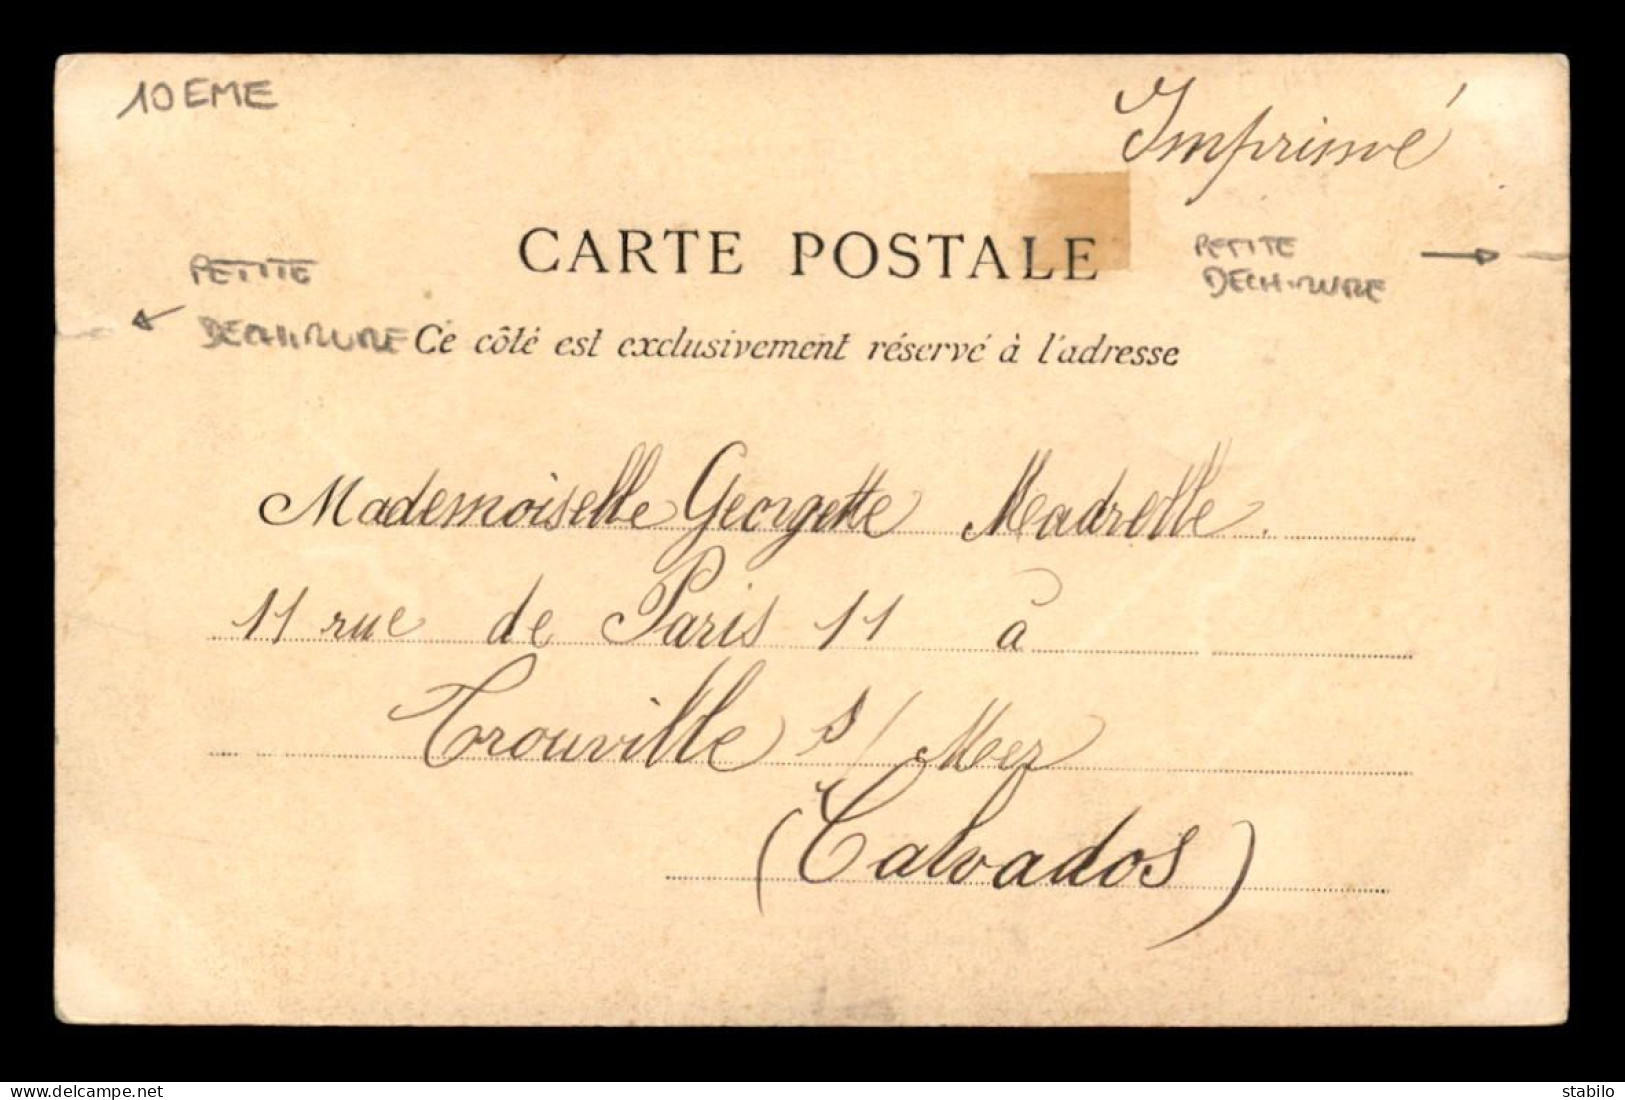 10 EME
Imprimé
CARTE POSTALE
PETITE
DECHIRURE
PETITE
DECHIRURE
Ce côté est exclusivement réservé à l'adresse
Mademoiselle Georgette Madrelle.
11 rue de Paris 11 à
Trouville s/ Mer
(Calvados)
www.delcampe.net
stabilo